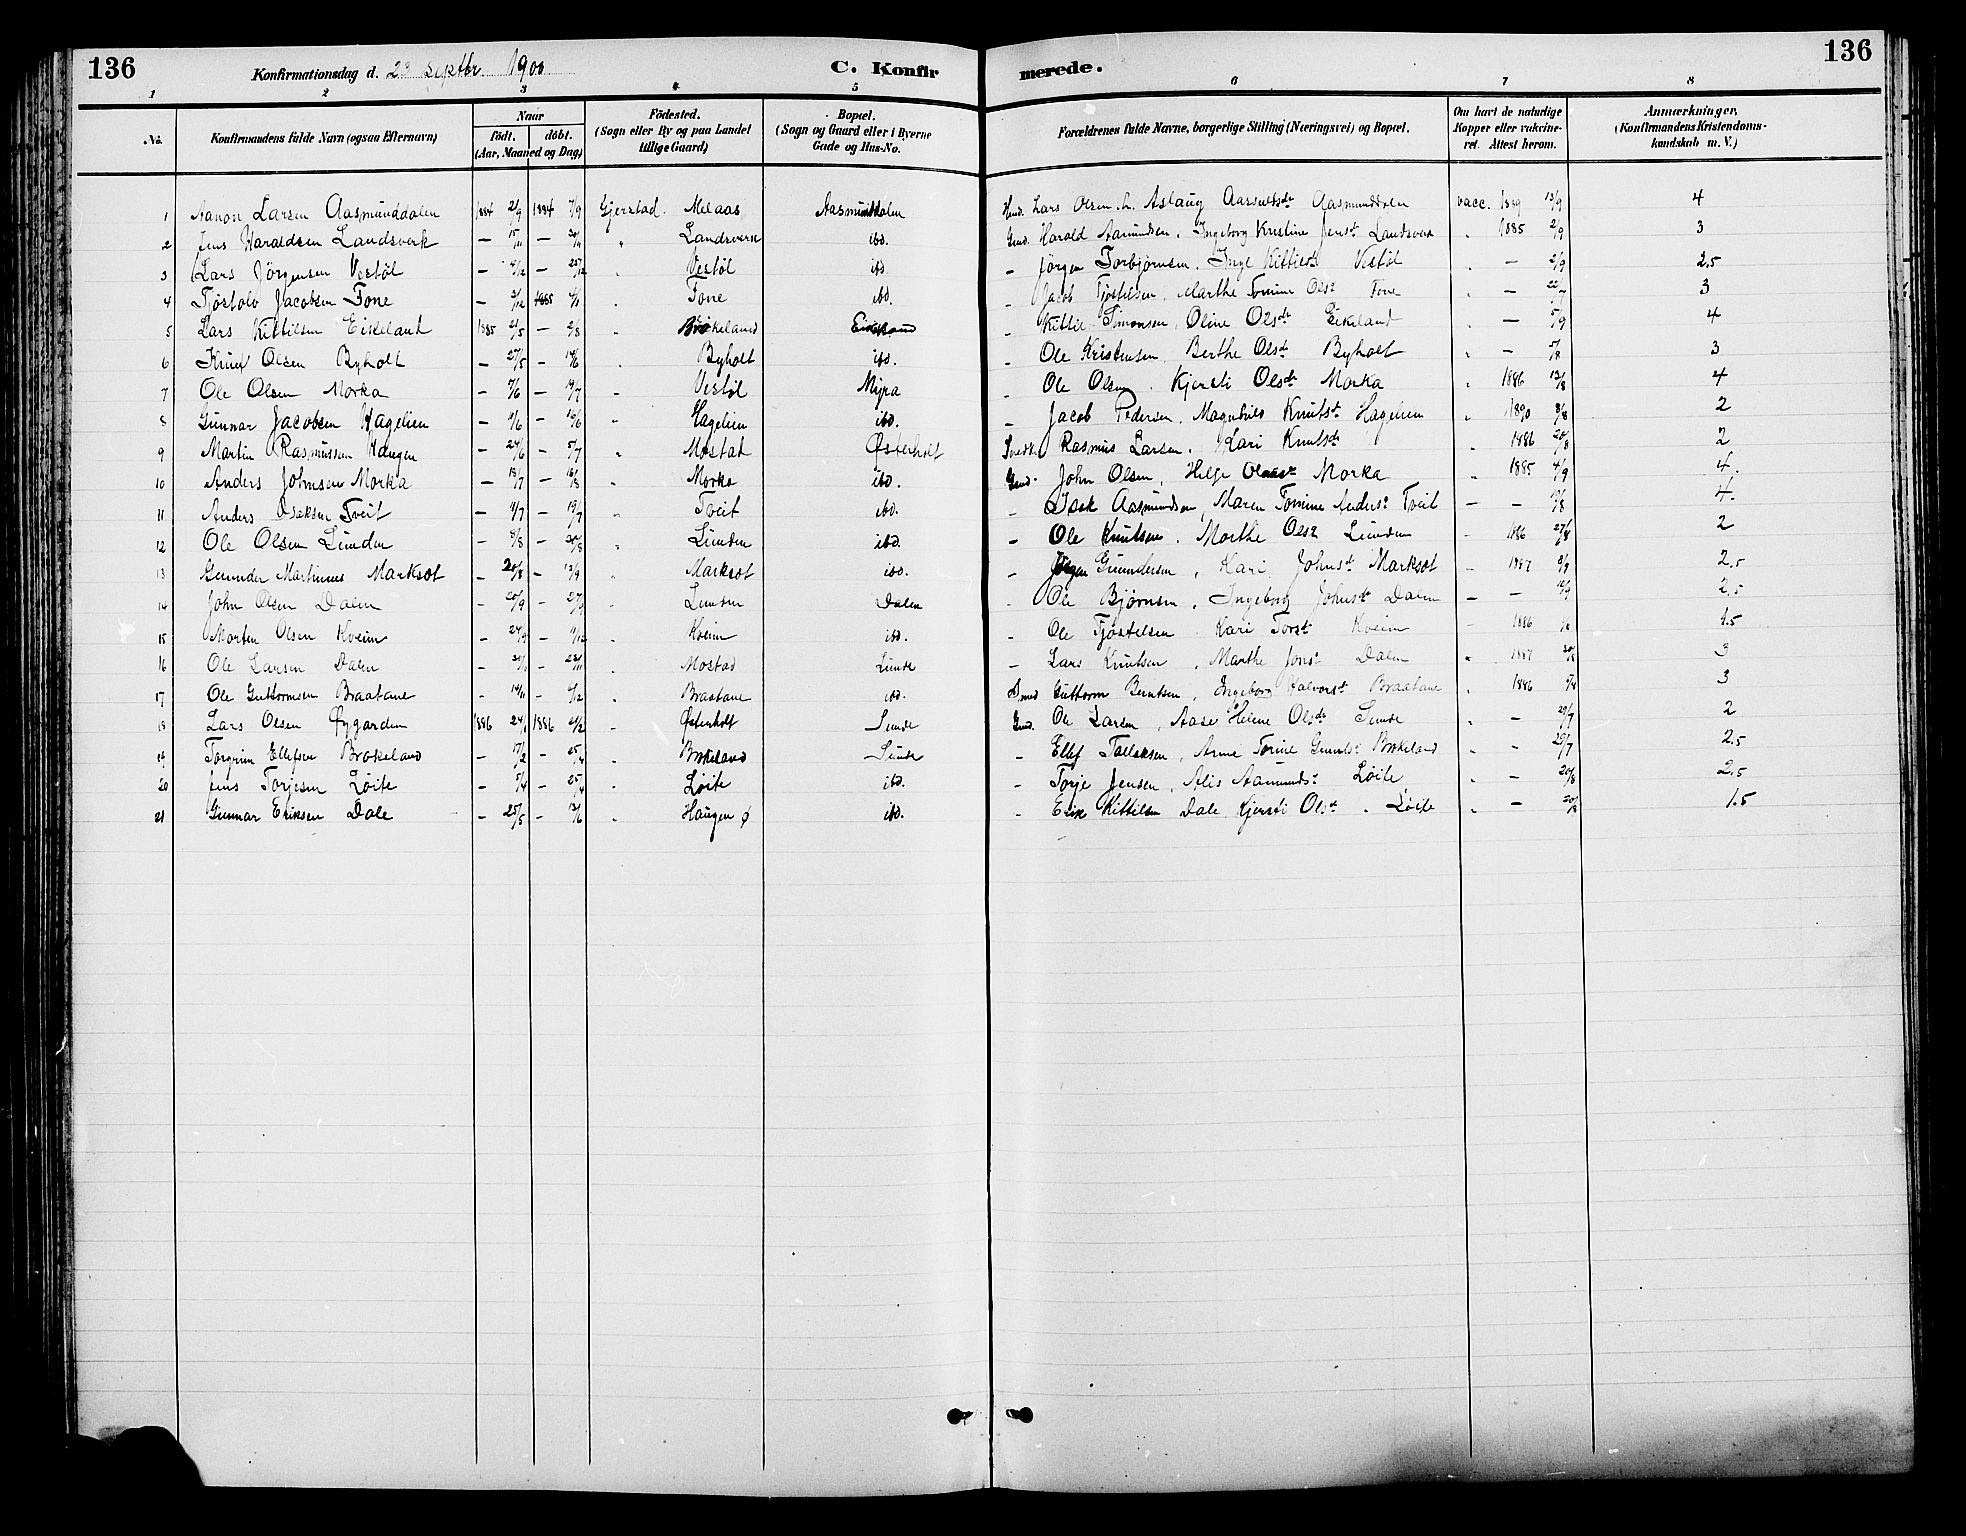 136
Konfirmationsdag d. 23 Septbr. 1900
C. Konfir
merede.
136
1 2 3 4 5 6 7 8
No. Konfirmandens fulde Navn (ogsaa Efternavn) Naar født. døbt. (Aar, Maaned og Dag) Födested. (Sogn eller By og paa Landet tillige Gaard) Bopæl. (Sogn og Gaard eller i Byerne Gade og Hus-No. Forældrenes fulde Navne, borgerlige Stilling (Næringsvei) og Bopæl. Om havt de naturlige Kopper eller vakcineret. Attest herom. Anmærkninger, (Konfirmandens Kristendomskundskab m. V.)
1 Aanon Larsen Aasmunddalen 1884 2/9 1884 7/9 Gjerstad. Melaas Aasmunddalen Lars Olsen Aslaug Aasmunddalen vacc. 1889 13/9 4
2 Jens Haraldsen Landsverk — 15/11 — 30/11 " Landsverk ibd. Gmd. Harald Aamundsen. Ingeborg Kristine Jensdt Landsverk " 1885 2/9 3
3 Lars Jörgensen Vestøl — 4/12 — 25/12 " Vestøl ibd. — Jörgen Torbjörnsen. Inge Kittilsdt Vestøl " — 2/9 2.5
4 Tjöstolv Jacobsen Fone — 3/12 1885 4/1 " Fone ibd. — Jacob Tjöstelsen. Marthe Tomine Olsdt Fone " — 22/7 3
5 Lars Kittilsen Eikeland 1885 21/5 — 2/8 " Brökeland Eikeland — Kittil Simonsen, Oline Olsdt Eikeland " — 5/9 4
6 Knut Olsen Byholt — 27/5 — 14/6 " Byholt ibd. — Ole Kristensen. Berthe Olsdt Byholt " — 5/8 3
7 Ole Olsen Morka — 7/6 — 19/7 " Vestøl Myra — Ole Olsen. Kjersti Olsdt Morka " 1886 13/8 4
8 Gunnar Jacobsen Hagelien — — " Hagelien ibd. — Jacob Pedersen. Magnhild Knutsdt Hagelien " 1890 8/8 2
9 Martin Rasmussen Haugen — 24/6 — 5/7 " Mostad Østerholt Rasmus Larsen. Kari Knutsdt " 1886 20/8 2
10 Anders Johnsen Morka — 18/7 — 16/8 " Morka ibd. Gmd. John Olsen, Helge Morka " 1885 4/9 4.
11 Anders Isaksen Tveit — 11/7 — 19/7 " Tveit ibd. — Isak Aasmundsen, Maren Tomine Andersdt Tveit — — 4.
12 Ole Olsen Lunden — 8/8 — 30/8 " Lunden ibd. — Ole Knutsen. Marthe Olsdt Lunden " 1886 27/8 2
13 Gunder Martinius Marksøt — 20/8 — 13/9 " Marksøt ibd. — Jörgen Gundersen, Kari Johnsdt Marksøt — 1887 9/9 2.5
14 John Olsen Dalen — 20/9 — " Lunden Dalen — Ole Bjørnsen, Ingeborg Johnsdt Dalen — — 2.5
15 Morten Olsen Kveim — 24/9 — " Kveim ibd. — Ole Tjöstelsen Kari Torsdt Kveim — 1886 1.5
16 Ole Larsen Dalen — — 22/11 " Mostad Lunde — Lars Knutsen, Marthe Jonsdt Dalen " 1887 3
17 Ole Guttormsen Braatane — 14/11 — 6/12 " Braatane ibd. Guttorm Berntsen, Ingeborg Halvorsdt Braatane " 1886 3
18 Lars Olsen Øygarden 1886 24/1 1886 21/2 " Østerholt Sunde Gmd. Ole Larsen, Aase Helene Olsdt Sunde " — 29/7 2
19 Torgrim Ellefsen Brøkeland — 17/2 — 25/4 " Brøkeland Sunde — Ellef Tallaksen, Anne Torine Brøkeland " — 29/7 2.5
20 Jens Torjesen Løite — 5/4 — 25/4 " Løite ibd. — Torje Jensen, Alis Aamundsdt Løite " — 20/8 2.5
21 Gunnar Eriksen Dale — 25/5 — 13/6 " Haugen ø ibd. — Erik Kittilsen Dale Kjersti Olsdt. Løite " — 20/8 1.5